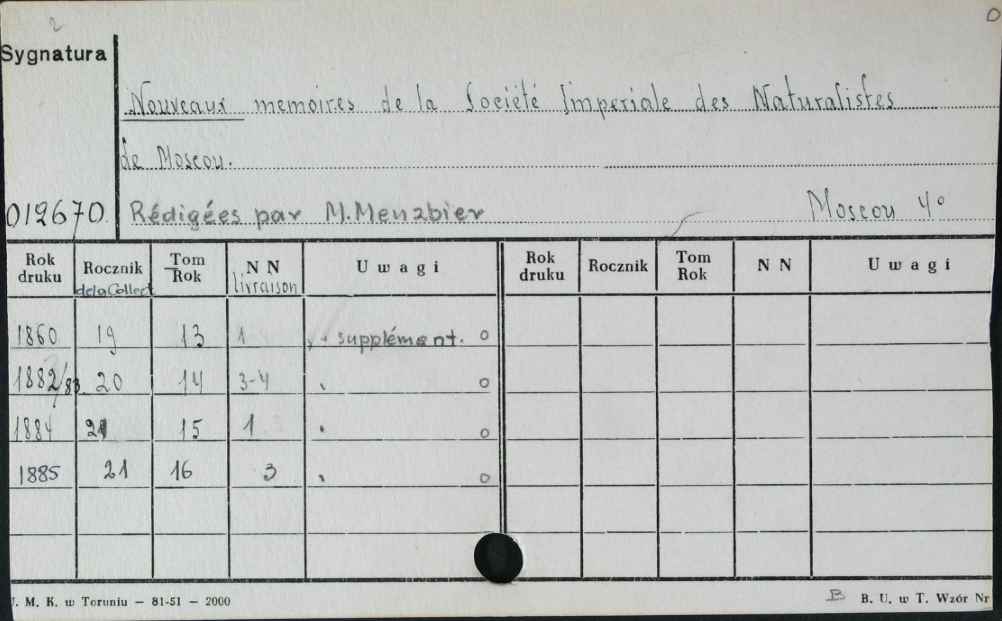 2
0
Sygnatura
Nouveaux memoires de la Société Imperiale des Naturalistes
de Moscou.
012670 Rédigées par M. Menzbier Moscou 4º
Rok druku Rocznik dela Collect Tom Rok N N livraison Uwagi Rok druku Rocznik Tom Rok N N Uwagi
1860 19 13 1 + supplément. o
1882/83 20 14 3-4 o
1884 21 15 1 o
1885 21 16 3 o
. M. K. w Toruniu — 81-51 — 2000 B B. U. w T. Wzór Nr